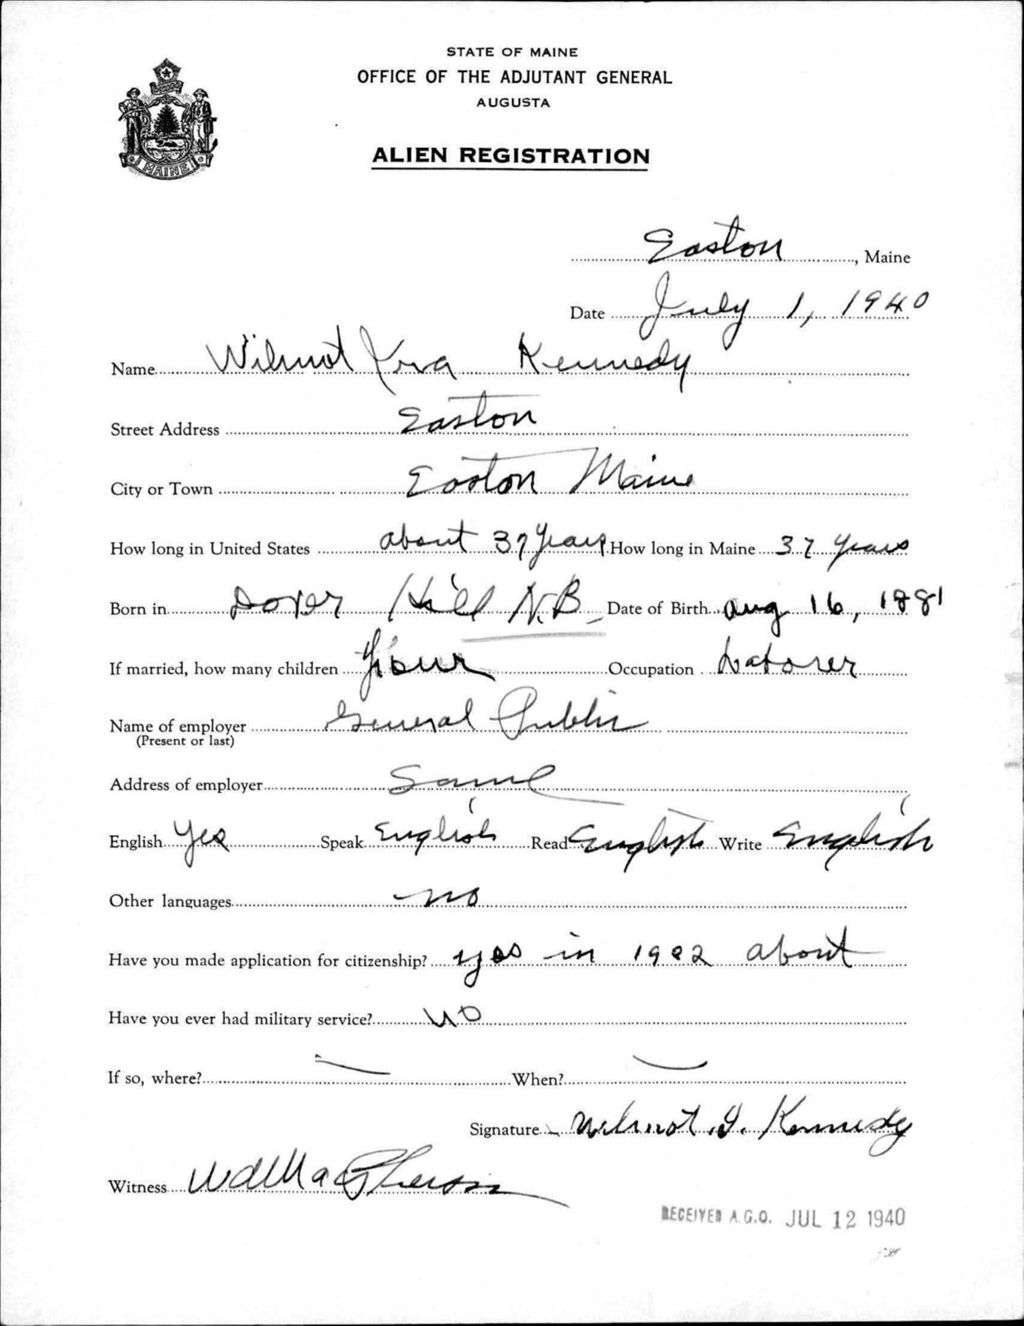 STATE OF MAINE
OFFICE OF THE ADJUTANT GENERAL
AUGUSTA
MAINE
ALIEN REGISTRATION
Easton, Maine
Date July 1, 1940
Name Wilmot Kennedy
Street Address Easton
City or Town Easton Maine
How long in United States about 37 Years How long in Maine 37 years
Born in Dover Hill N.B. Date of Birth Aug 16, 1881
If married, how many children Four Occupation Laborer
Name of employer General Public
(Present or last)
Address of employer Same
English Yes Speak English Read English Write English
Other languages no
Have you made application for citizenship? yes in about
Have you ever had military service? no
If so, where? — When? —
Signature Wilmot Kennedy
Witness
RECEIVED A.G.O. JUL 12 1940